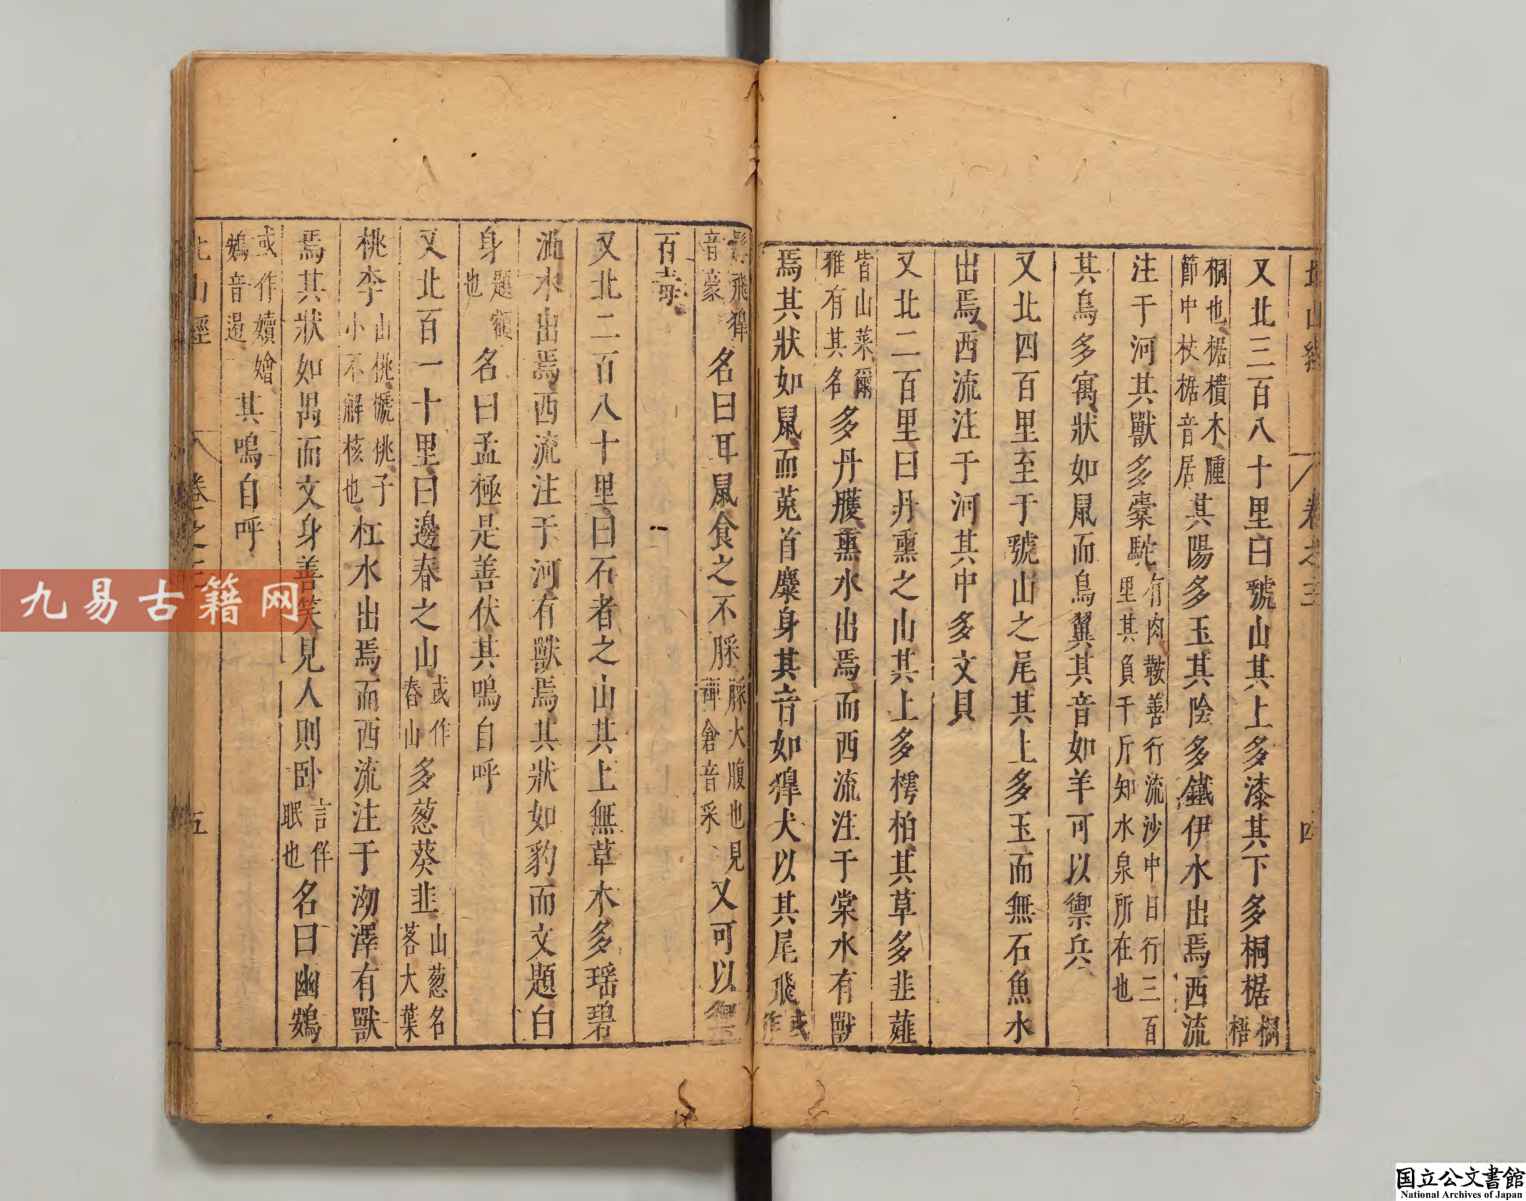 又北三百八十里曰虢山其上多漆其下多桐椐桐梧
桐也椐樻木腫節中杖椐音居其陽多玉其陰多鐵伊水出焉西流
注于河其獸多橐駝有肉鞍善行流沙中日行三百里其負千斤知水泉所在也
其鳥多寓狀如鼠而鳥翼其音如羊可以禦兵
又北四百里至于虢山之尾其上多玉而無石魚水
出焉西流注于河其中多文貝
又北二百里曰丹熏之山其上多樗柏其草多韭薤
皆山菜爾雅有其名多丹雘熏水出焉而西流注于棠水有獸
焉其狀如鼠而菟首麋身其音如獋犬以其尾飛或作
飛獋音豪名曰耳鼠食之不䐆䐆大腹也見裨倉音采又可以禦
百毒
又北二百八十里曰石者之山其上無草木多瑶碧
泚水出焉西流注于河有獸焉其狀如豹而文題白
身題額也名曰孟極是善伏其鳴自呼
又北百一十里曰邊春之山或作春山多葱葵韭山葱名茖大葉
桃李山桃榹桃子小不解核也杠水出焉而西流注于泑澤有獸
焉其狀如禺而文身善笑見人則卧言佯眠也名曰幽鴳
或作嬻嬒鴳音遏其鳴自呼
北山經
卷之三
五
卷之三
四
九易古籍网
国立公文書館
National Archives of Japan